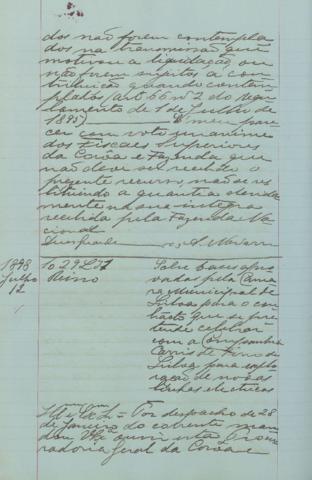 dos não forem contempla
dos na transmissão que
motivou a liquidação, ou
não forem sujeitos a con
tribuição quando contem
plados (art. 66 nº 2 do Regu
lamento de 1 de Julho de
1895) É meu pare
cer com voto unanime
dos Fiscaes Superiores
da Corôa e Fazenda que
não deve ser recebido o
presente recurso
mente na sua integra
recebida pela Fazenda Na
cional
1898
Julho
12
Reino
Sobre bases apro
vadas pela Cama
ra Municipal de
Lisboa para o con
tracto que se pre
tende celebrar
com a Companhia
Carris de Ferro de
Lisboa para explo
ração de novas
linhas electricas
Por despacho de 28
de Janeiro do corrente man
dou ouvir esta Procu
radoria Geral da Corôa e